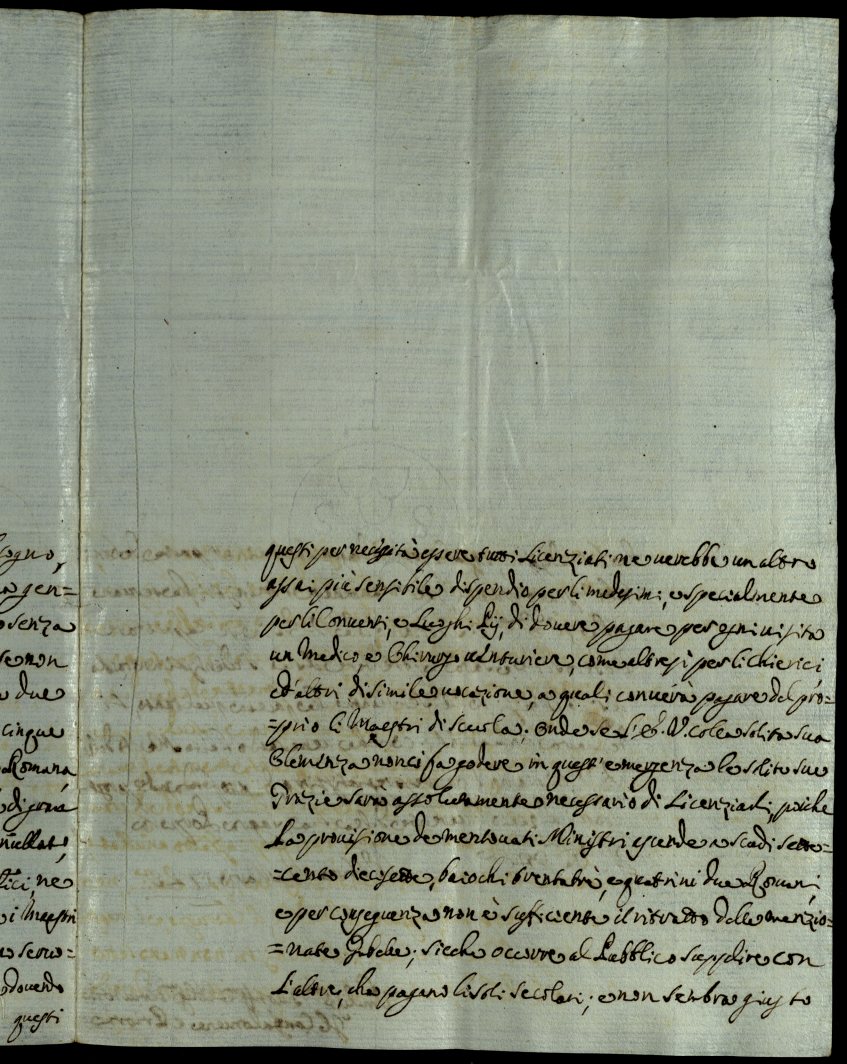 logno,
gen=
senza
se non
due
cinque
Romana
di
ne
i Maestri
=
dovendo
questi
questi per necessità essere tutti Licenziati ne verebbe un altro
assai più sensibile dispendio per li medesimi, e specialmente
per li Conventi, e Luoghi Pij, di dovere pagare per ogni visita
un Medico, e Chirurgo venturiere, come altresì per li chierici
ed' altri di simile vocazione, a quali converrà pagare del pro=
=prio li Maestri di scuola; Onde se V. cola solita sua
Clemenza non ci fa godere in quest' emergenza le solite sue
Grazie sarà assolutamente necessario di Licenziarli, poiche
La provisione de mentovati Ministri ascende a scudi sette=
=cento diecisette, baiochi trentatrè, e quatrini due Romani,
e per conseguenza non è sufficiente il ritratto delle menzio=
=nate Gabelle; sicche occorre al Pubblico supplire con
L'altre, che pagano li soli secolari; e non sembra giusto